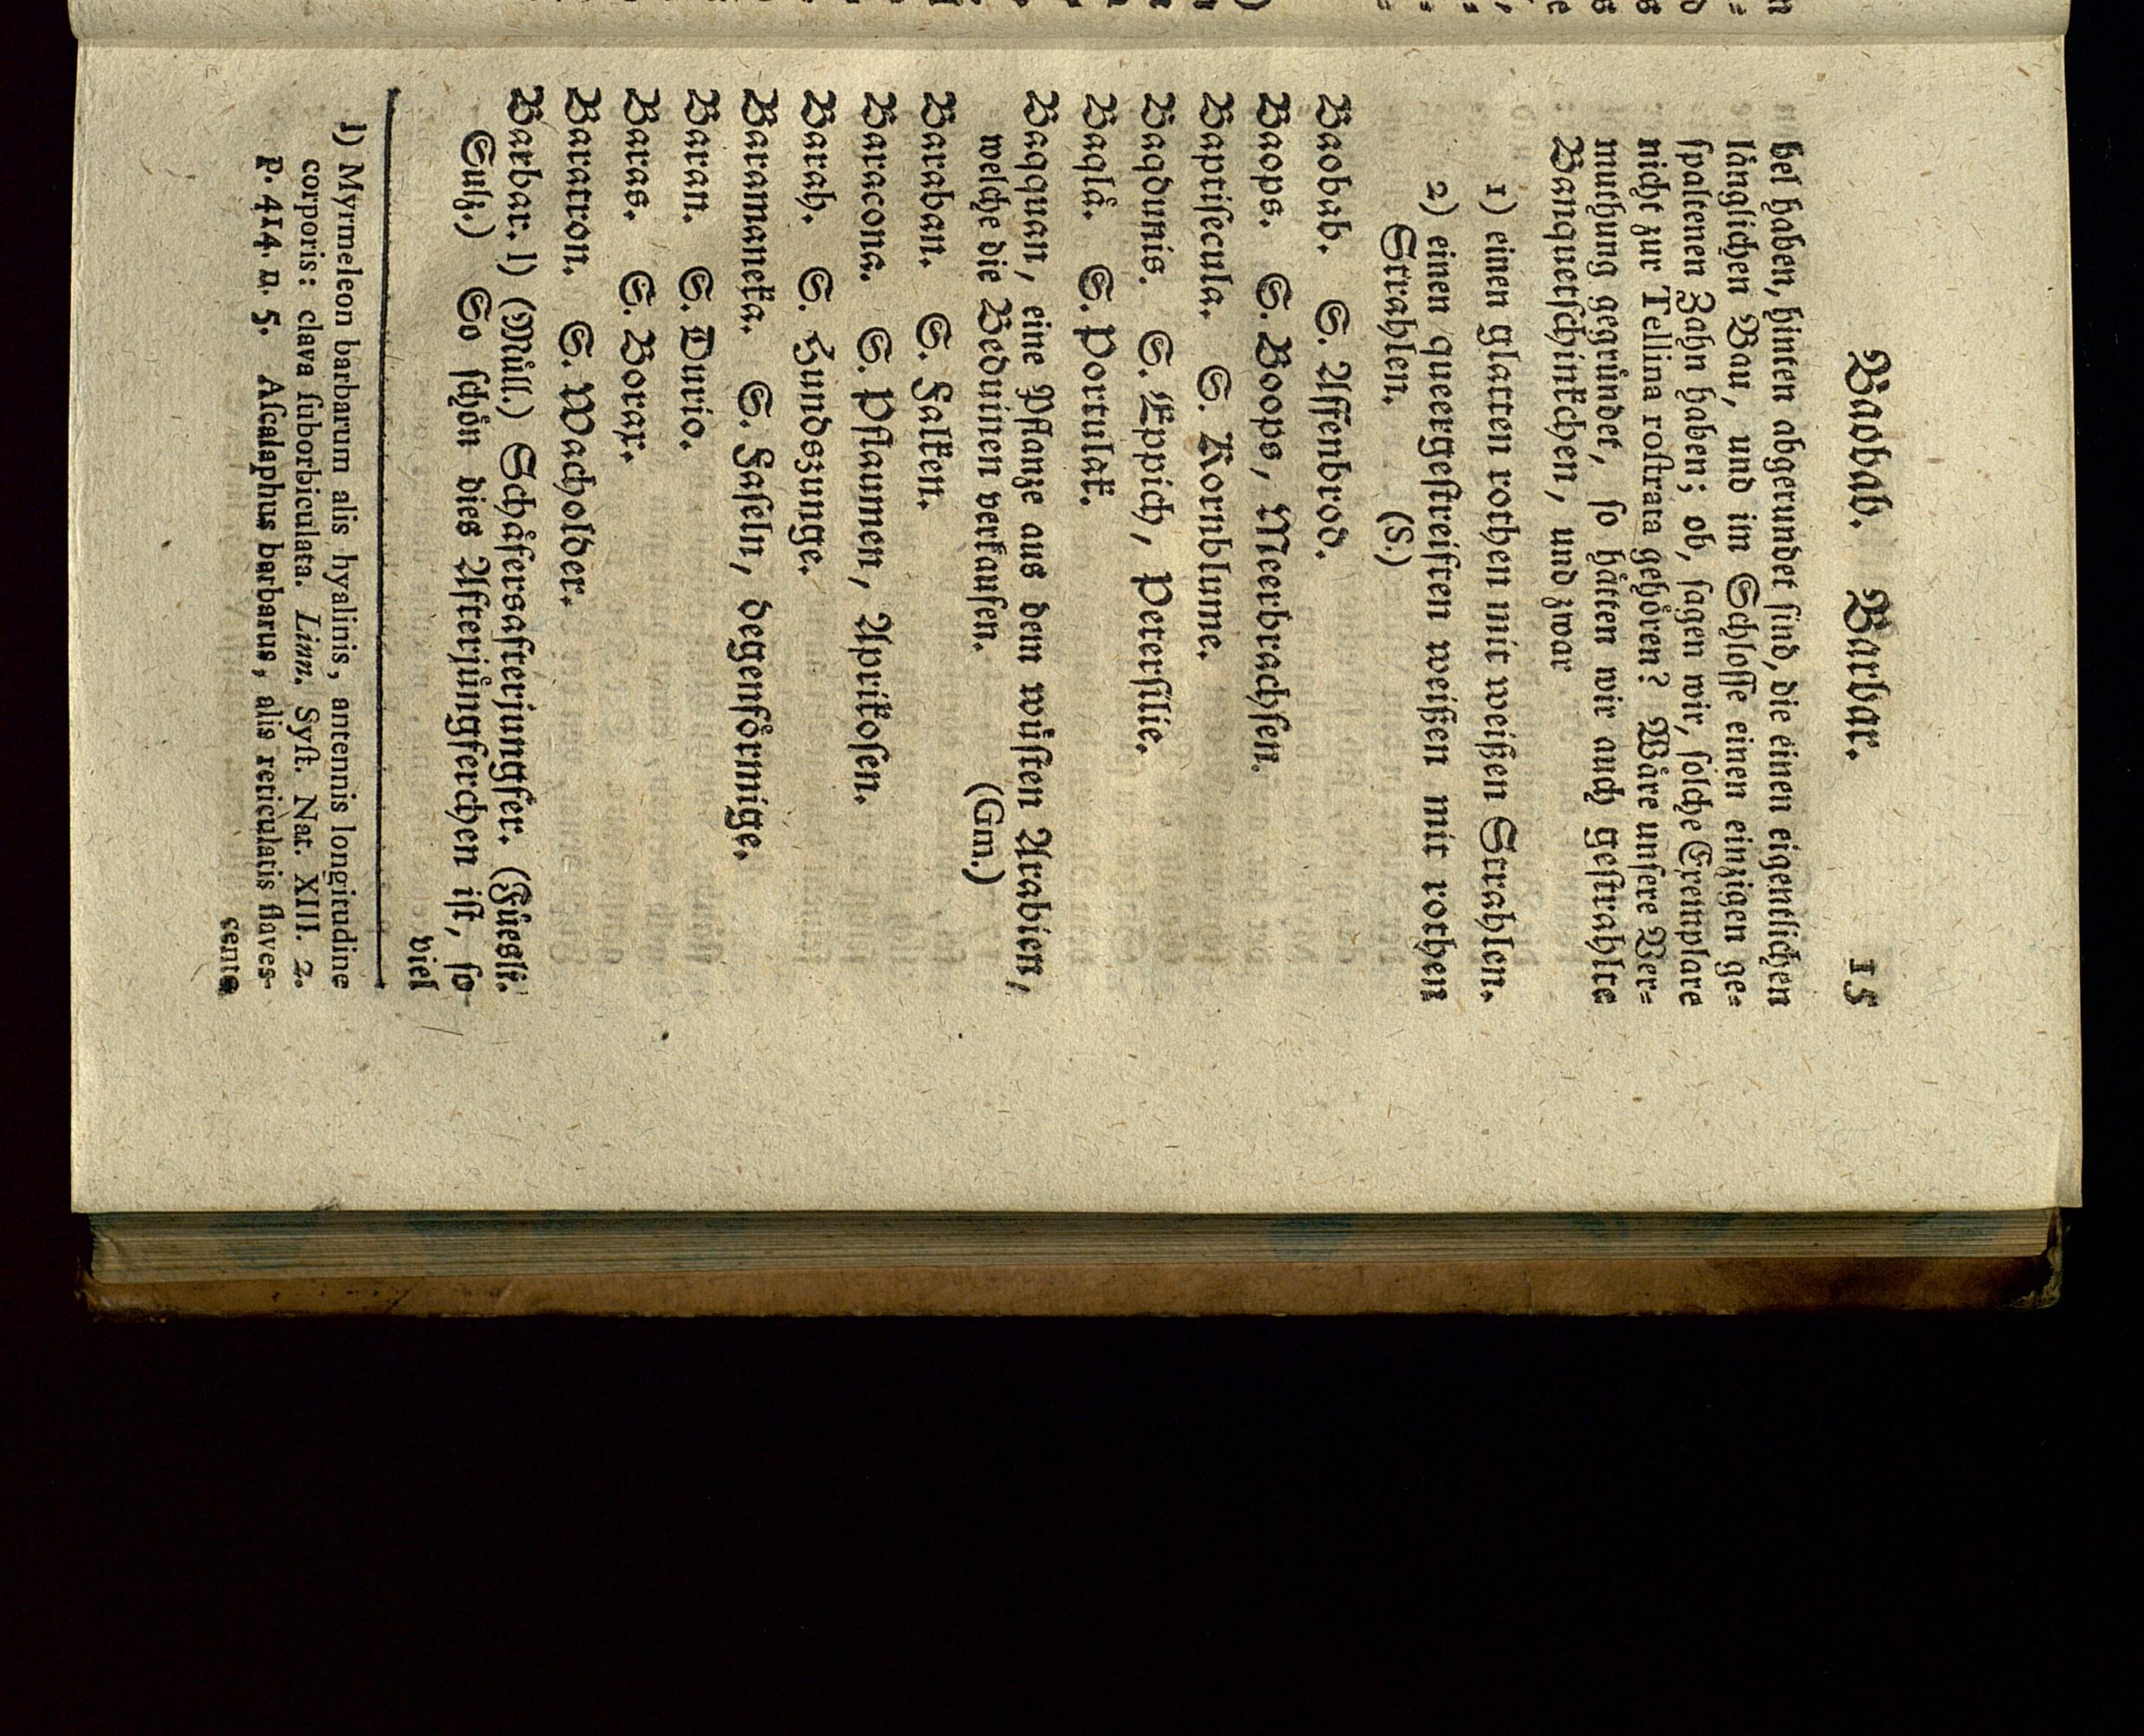 Baobab. Barbar. 15
bel haben, hinten abgerundet ſind, die einen eigentlichen
länglichen Bau, und im Schloſſe einen einzigen ge-
ſpaltenen Zahn haben; ob, ſagen wir, ſolche Exemplare
nicht zur Tellina roſtrata gehören? Wäre unſere Ver-
muthung gegründet, ſo hätten wir auch geſtrahlte
Banquetſchinkchen, und zwar
1) einen glatten rothen mit weißen Strahlen.
2) einen queergeſtreiften weißen mit rothen
Strahlen. (S.)
Baobab. S. Affenbrod.
Baops. S. Boops, Meerbrachſen.
Baptiſecula. S. Kornblume.
Baqdunis. S. Eppich, Peterſilie.
Baqlä. S. Portulak.
Baqquan, eine Pflanze aus dem wüſten Arabien,
welche die Beduinen verkaufen. (Gm.)
Baraban. S. Falken.
Baracona. S. Pflaumen, Aprikoſen.
Barah. S. Hundszunge.
Baramaneka. S. Faſeln, degenförmige.
Baran. S. Durio.
Baras. S. Borax.
Baratron. S. Wacholder.
Barbar. l) (Müll.) Schäfersafterjungfer. (Füesli.
Sulz.) So ſchön dies Afterjüngferchen iſt, ſo
viel
l) Myrmeleon barbarum alis hyalinis, antennis longitudine
corporis: clava ſuborbiculata. Linn. Syſt. Nat. XIII. 2.
p. 414. n. 5. Aſcalaphus barbarus, alis reticulatis flaves-
cente